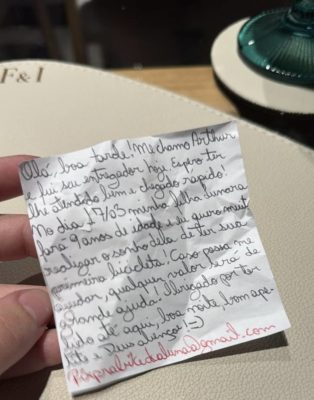 F & I
Olá, boa tarde! Me chamo Arthur
e fui seu entregador hoje. Espero ter
lhe atendido bem e chegado rápido!
No dia 17/03 minha filha Lunara
fará 9 anos de idade e eu quero muito
realizar o sonho dela de ter sua
primeira bicicleta! Caso possa me
ajudar, qualquer valor será de
grande ajuda! Obrigado por ter
lido até aqui, boa noite, bom ape-
tite e Deus abençoe! =)